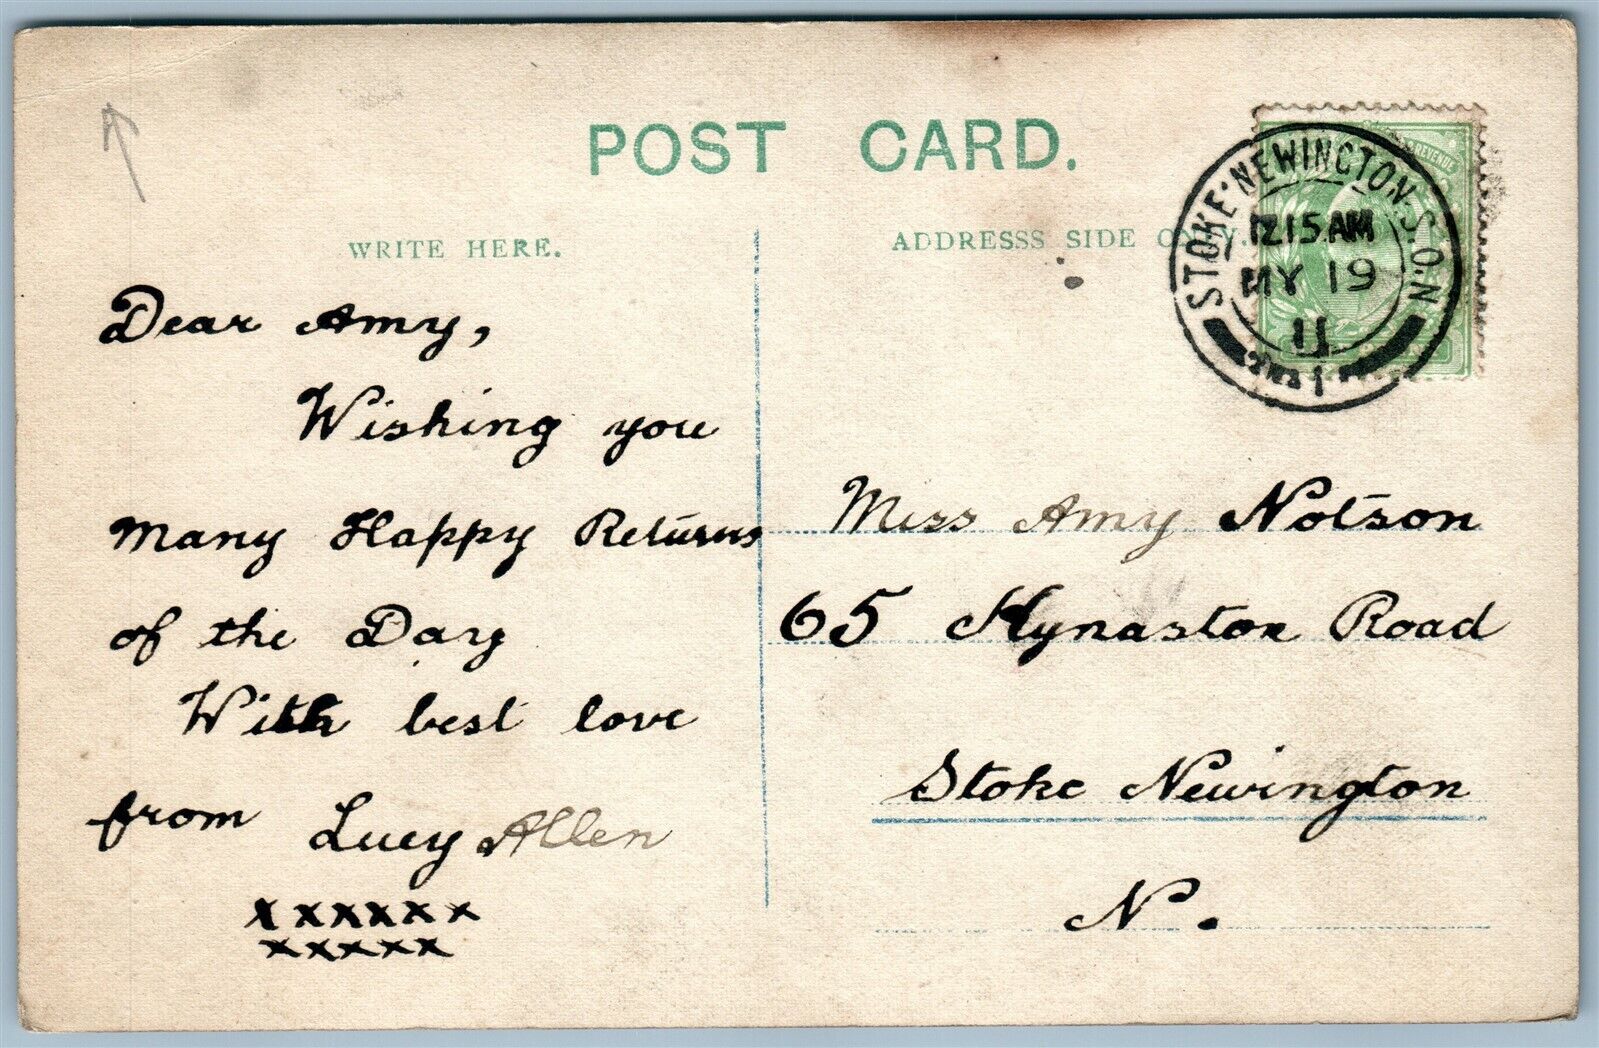 POST CARD.
WRITE HERE.
Dear Amy,
Wishing you
Many Happy Returns
of the Day
With best love
from Lucy Allen
x x x x x x
x x x x x
ADDRESSS SIDE ONLY.
REVENUE
STOKE·NEWINGTON·S.O.N
12 15 AM
MY 19
11
Miss Amy Notson
65 Kynaston Road
Stoke Newington
N.